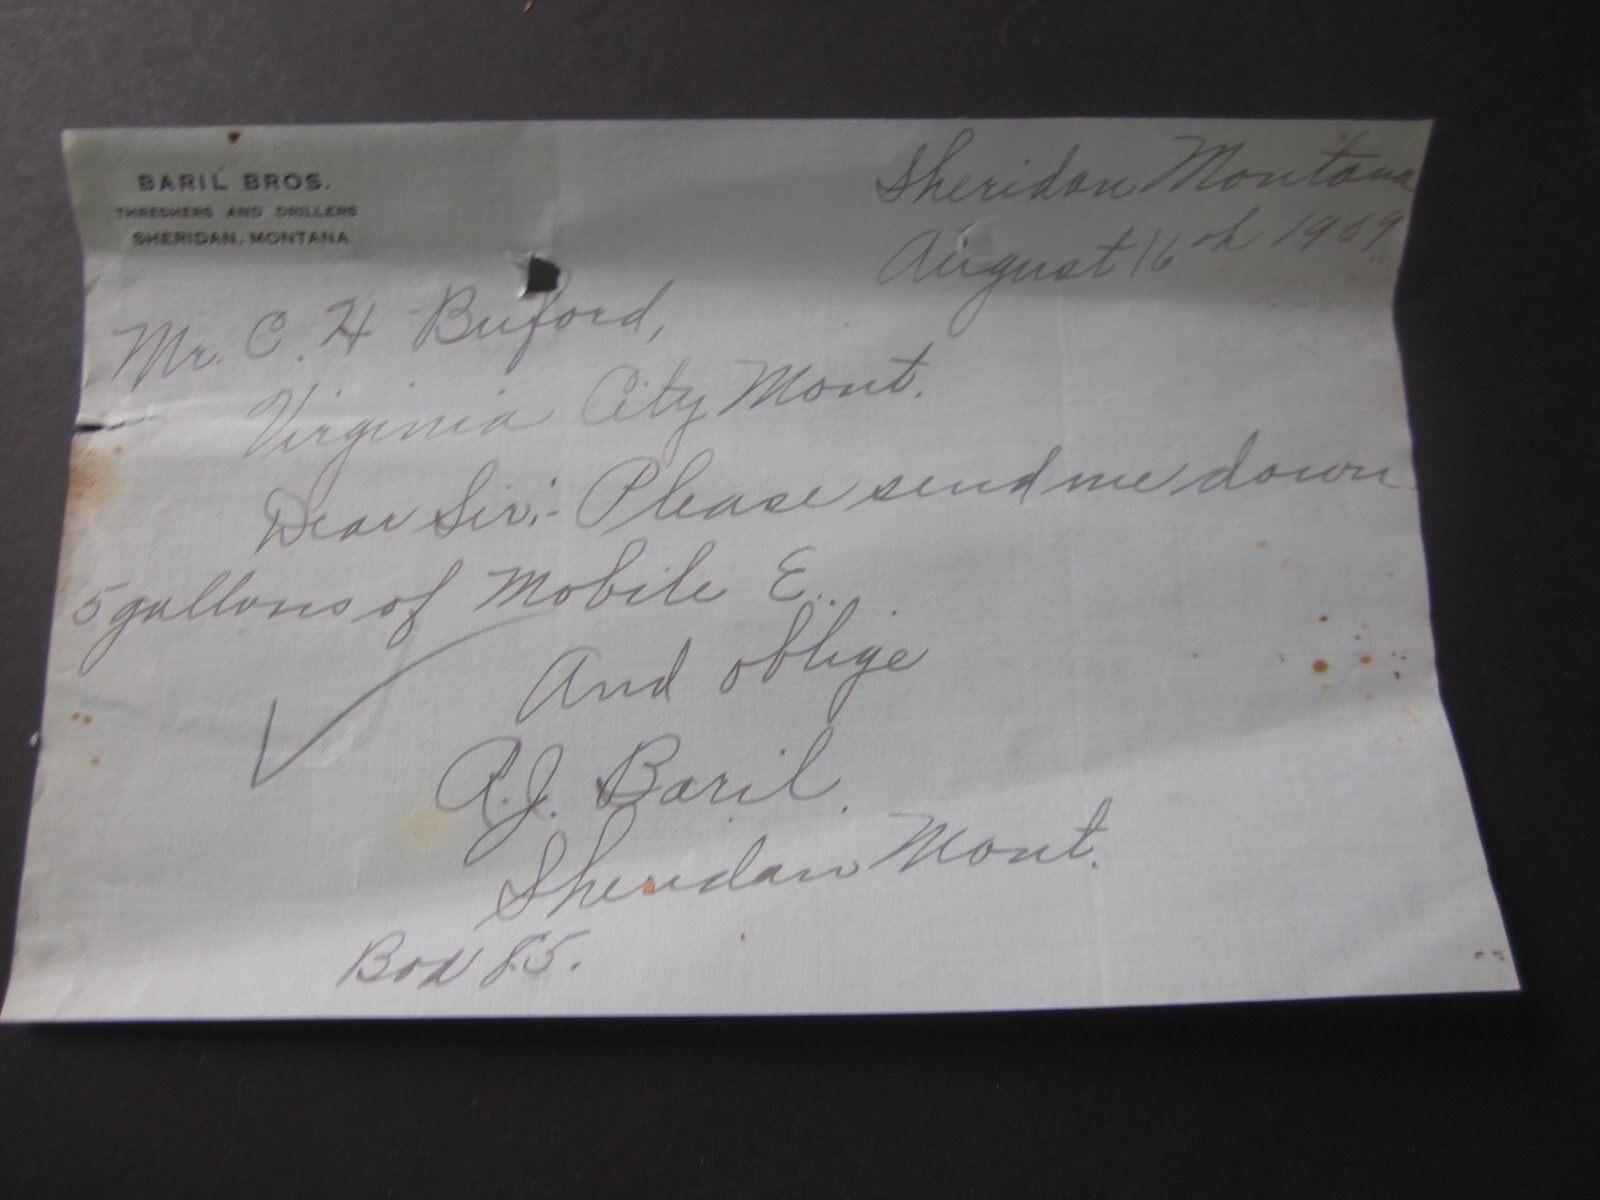 BARIL BROS.
THRESHERS AND DRILLERS
SHERIDAN, MONTANA
Sheridan Montana
August 16th 1909.
Mr. C. H Buford,
Virginia City Mont.
Dear Sir:- Please send me down
5 gallons of Mobile E.
And oblige
A.J. Baril.
Sheridan Mont.
Box 85.